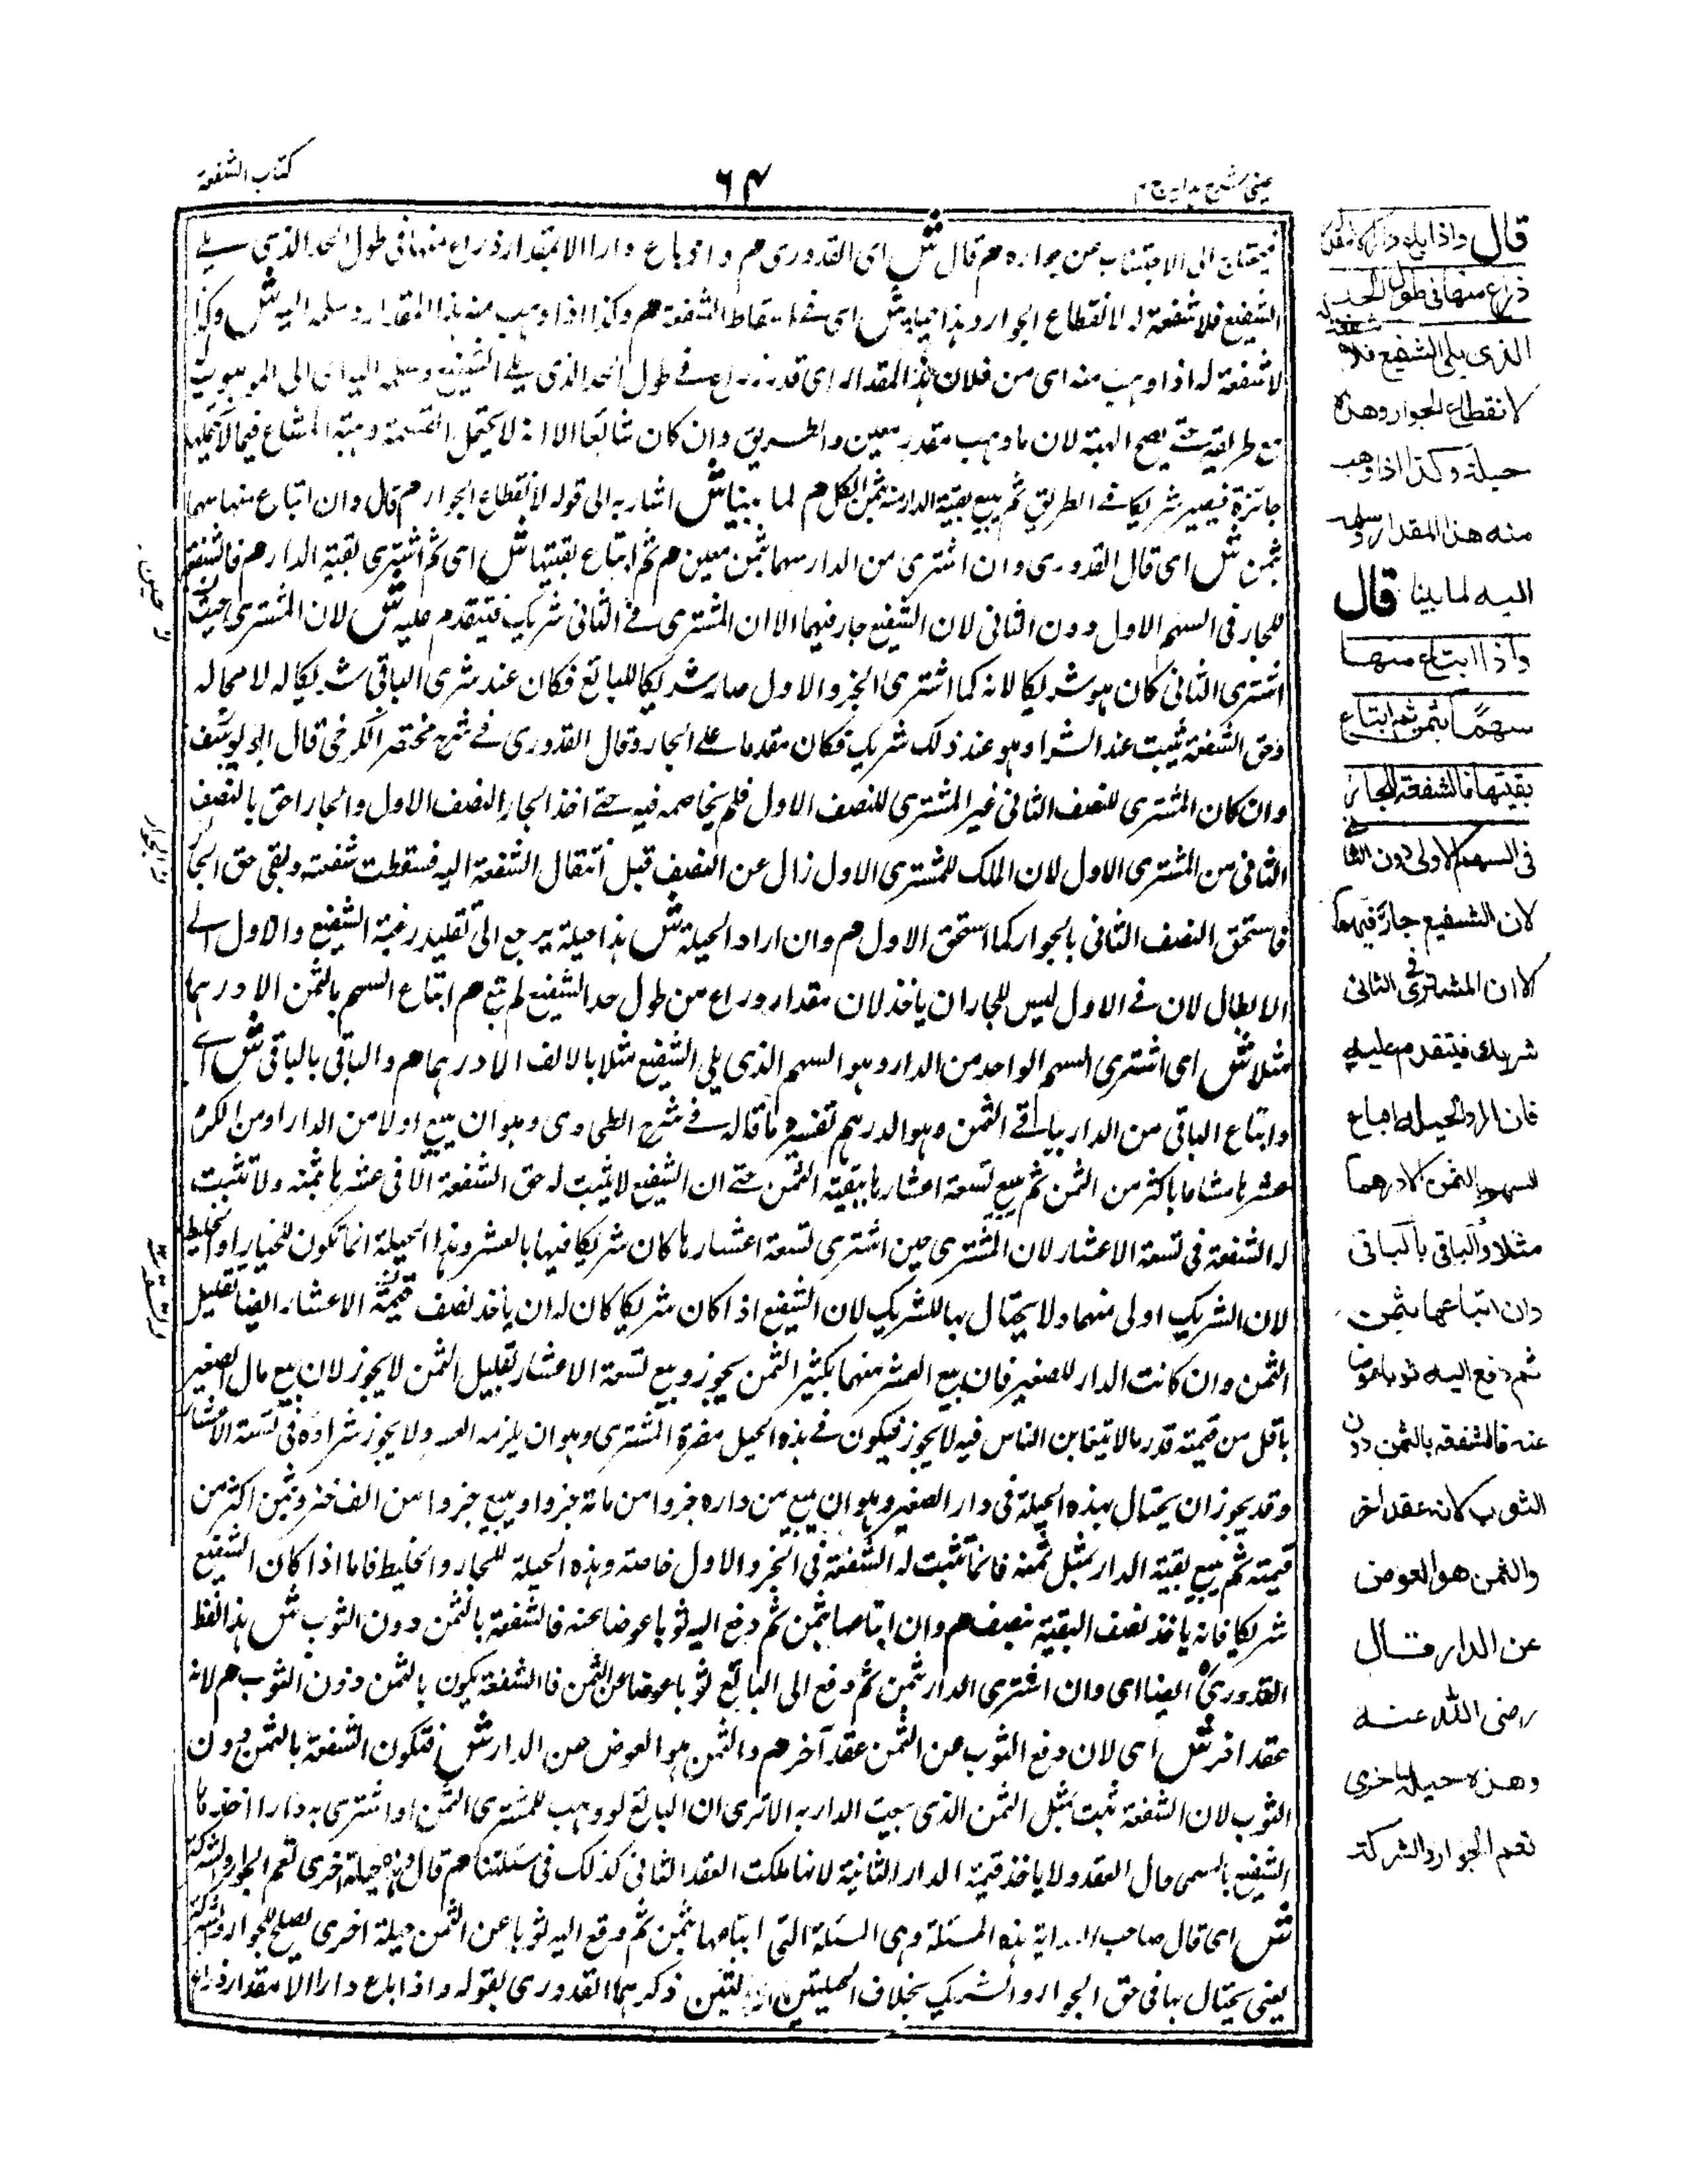 كتاب الشفعة
٦٤
عيني شرح هدايه ج ٤
الى الاجتناب عن جواره هم قال ش اى القدورى هم واذا باع دارا الا بمقدار ذراع منها فى طول الحد الذى يلے
الشفيع فلا شفعة له لانقطاع الجوار وهذا حيلة ش اى فے اسقاط الشفعة هم وكذا اذا وهب منه هذا المقدار وسلمه اليه ش وكذا
لا شفعة له اذا وهب منه اى من فلان هذا المقدار اى قدر ذراع فے طول الحد الذى يلے الشفيع وسلمه اليه اى الى الموهوب
مع طريقه حتے يصح الهبة لان ما وهب مقدر معين والطريق وان كان شائعا الا انه لا يحتمل القسمة وهبة المشاع فيما لا يحتملها
جائزة فيصير شريكا فے الطريق ثم يبيع بقية الدار منه بثمن الكل هم لما بينا ش اشار به الى قوله لانقطاع الجوار هم قال وان ابتاع منها سهما
بثمن ش اى قال القدورى وان اشترى من الدار سهما بثمن معين هم ثم ابتاع بقيتها ش اى ثم اشترى بقية الدار هم فالشفعة
للجار فى السهم الاول دون الثانى لان الشفيع جار فيهما الا ان المشترى فے الثانى شريك فيتقدم عليه ش لان المشترى حيث
اشترى الثانى كان هو شريكا لانه كما اشترى الجزو الاول صار شريكا للبائع فكان عند شرى الباقى شريكا له لا محاله
وحق الشفعة يثبت عند الشراء وهو عند ذلك شريك فكان مقدما على الجار وقال القدورى فے شرح مختصر الكرخى قال ابو يوسف
وان كان المشترى للنصف الثانى غير المشترى للنصف الاول فلم يخاصمه فيه حتے اخذ الجار النصف الاول والجار احق بالنصف
الثانى من المشترى الاول لان الملك للمشترى الاول زال عن النصف قبل انتقال الشفعة اليه فسقطت شفعته وبقى حق الجار
فاستحق النصف الثانى بالجوار كما استحق الاول هم وان اراد الحيلة ش هذا حيلة يرجع الى تقليد رغبة الشفيع والاول الے
الابطال لان فے الاول ليس للجار ان ياخذ لان مقدار ذراع من طول حد الشفيع لم يبع هم ابتاع السهم بالثمن الا درهما
مثلا ش اى اشترى السهم الواحد من الدار وهو السهم الذى يلى الشفيع مثلا بالالف الا درهما هم والباقى بالباقى ش اے
وابتاع الباقى من الدار بباقے الثمن وهو الدرهم تفسيره ما قاله فے شرح الطحاوى وهو ان يبيع اولا من الدار او من الكرم
عشرها مشاعا باكثر من الثمن ثم يبيع تسعة اعشارها ببقية الثمن حتے ان الشفيع لا يثبت له حق الشفعة الا فى عشرها بثمنه ولا تثبت
له الشفعة فى تسعة الاعشار لان المشترى حين اشترى تسعة اعشارها كان شريكا فيها بالعشر وهذا الحيلة انما تكون للجار او الخليط
لان الشريك اولى منهما ولا يحتال بها للشريك لان الشفيع اذا كان شريكا كان له ان ياخذ نصف قيمة الاعشار ايضا بقليل
الثمن وان كانت الدار للصغير فان بيع العشر منهما بكثير الثمن يجوز وبيع تسعة الاعشار بقليل الثمن لا يجوز لان بيع مال الصغير
باقل من قيمته قدر ما لا يتغابن الناس فيه لا يجوز فيكون فے هذه الحيل مضرة المشترى وهو ان يلزمه العشر ولا يجوز شراؤه فى تسعة الاعشار
وقد يجوز ان يحتال بهذه الحيلة فى دار الصغير وهو ان يبيع من داره جزوا من مائة جزوا ويبيع جزوا من الف جزو بثمن اكثر من
قيمته ثم يبيع بقية الدار بمثل ثمنه فانما تثبت له الشفعة فى الجزو الاول خاصة وهذه الحيلة للجار والخليط فاما اذا كان الشفيع
شريكا فانه ياخذ نصف البقية بنصف هم وان ابتاعها بثمن ثم دفع اليه ثوبا عوضا عنه فالشفعة بالثمن دون الثوب ش هذا لفظ
القدورى ايضا اى وان اشترى الدار بثمن ثم دفع الى البائع ثوبا عوضا عن الثمن فاالشفعة يكون بالثمن دون الثوب هم لانه
عقد اخر ش اى لان دفع الثوب عن الثمن عقد آخر هم والثمن هو العوض عن الدار ش فتكون الشفعة بالثمن دون
الثوب لان الشفعة تثبت بمثل الثمن الذى بيعت الدار به الا ترى ان البائع لو وهب للمشترى الثمن او اشترى به دارا اخذها
الشفيع بالمسمى حال العقد ولا ياخذ قيمة الدار الثانية لانها ملكت العقد الثانى كذلك فى مسئلتنا هم قال وهذه حيلة اخرى تعم الجوار والشركة
ش اى قال صاحب الهداية هذه المسئلة وهى المسئلة التى ابتاعها بثمن ثم دفع اليه ثوبا عن الثمن حيلة اخرى يصلح للجوار والشركة
يعنى يحتال بها فى حق الجوار والشريك بخلاف الحيلتين اللتين ذكرهما القدورى بقوله واذا باع دارا الا مقدار ذراع
قال واذا باع دارا الا مقدار
ذراع منها فى طول الحد
الذى يلى الشفيع فلا شفعة له
لانقطاع الجوار وهذه
حيلة وكذا اذا وهب
منه هذا المقدار وسلمه
اليه لما بينا قال
واذا ابتاع منها
سهمًا بثمن ثم ابتاع
بقيتها فالشفعة للجار
فى السهم الاول دون الثانى
لان الشفيع جار فيهما
الا ان المشترى فى الثانى
شريك فيتقدم عليه
فان اراد الحيلة ابتاع
السهم بالثمن الا درهما
مثلا والباقى بالباقى
وان ابتاعها بثمن
ثم دفع اليه ثوبا عوضا
عنه فالشفعة بالثمن دون
الثوب لانه عقد اخر
والثمن هو العوض
عن الدار قال
رضى الله عنه
وهذه حيلة اخرى
تعم الجوار والشركة